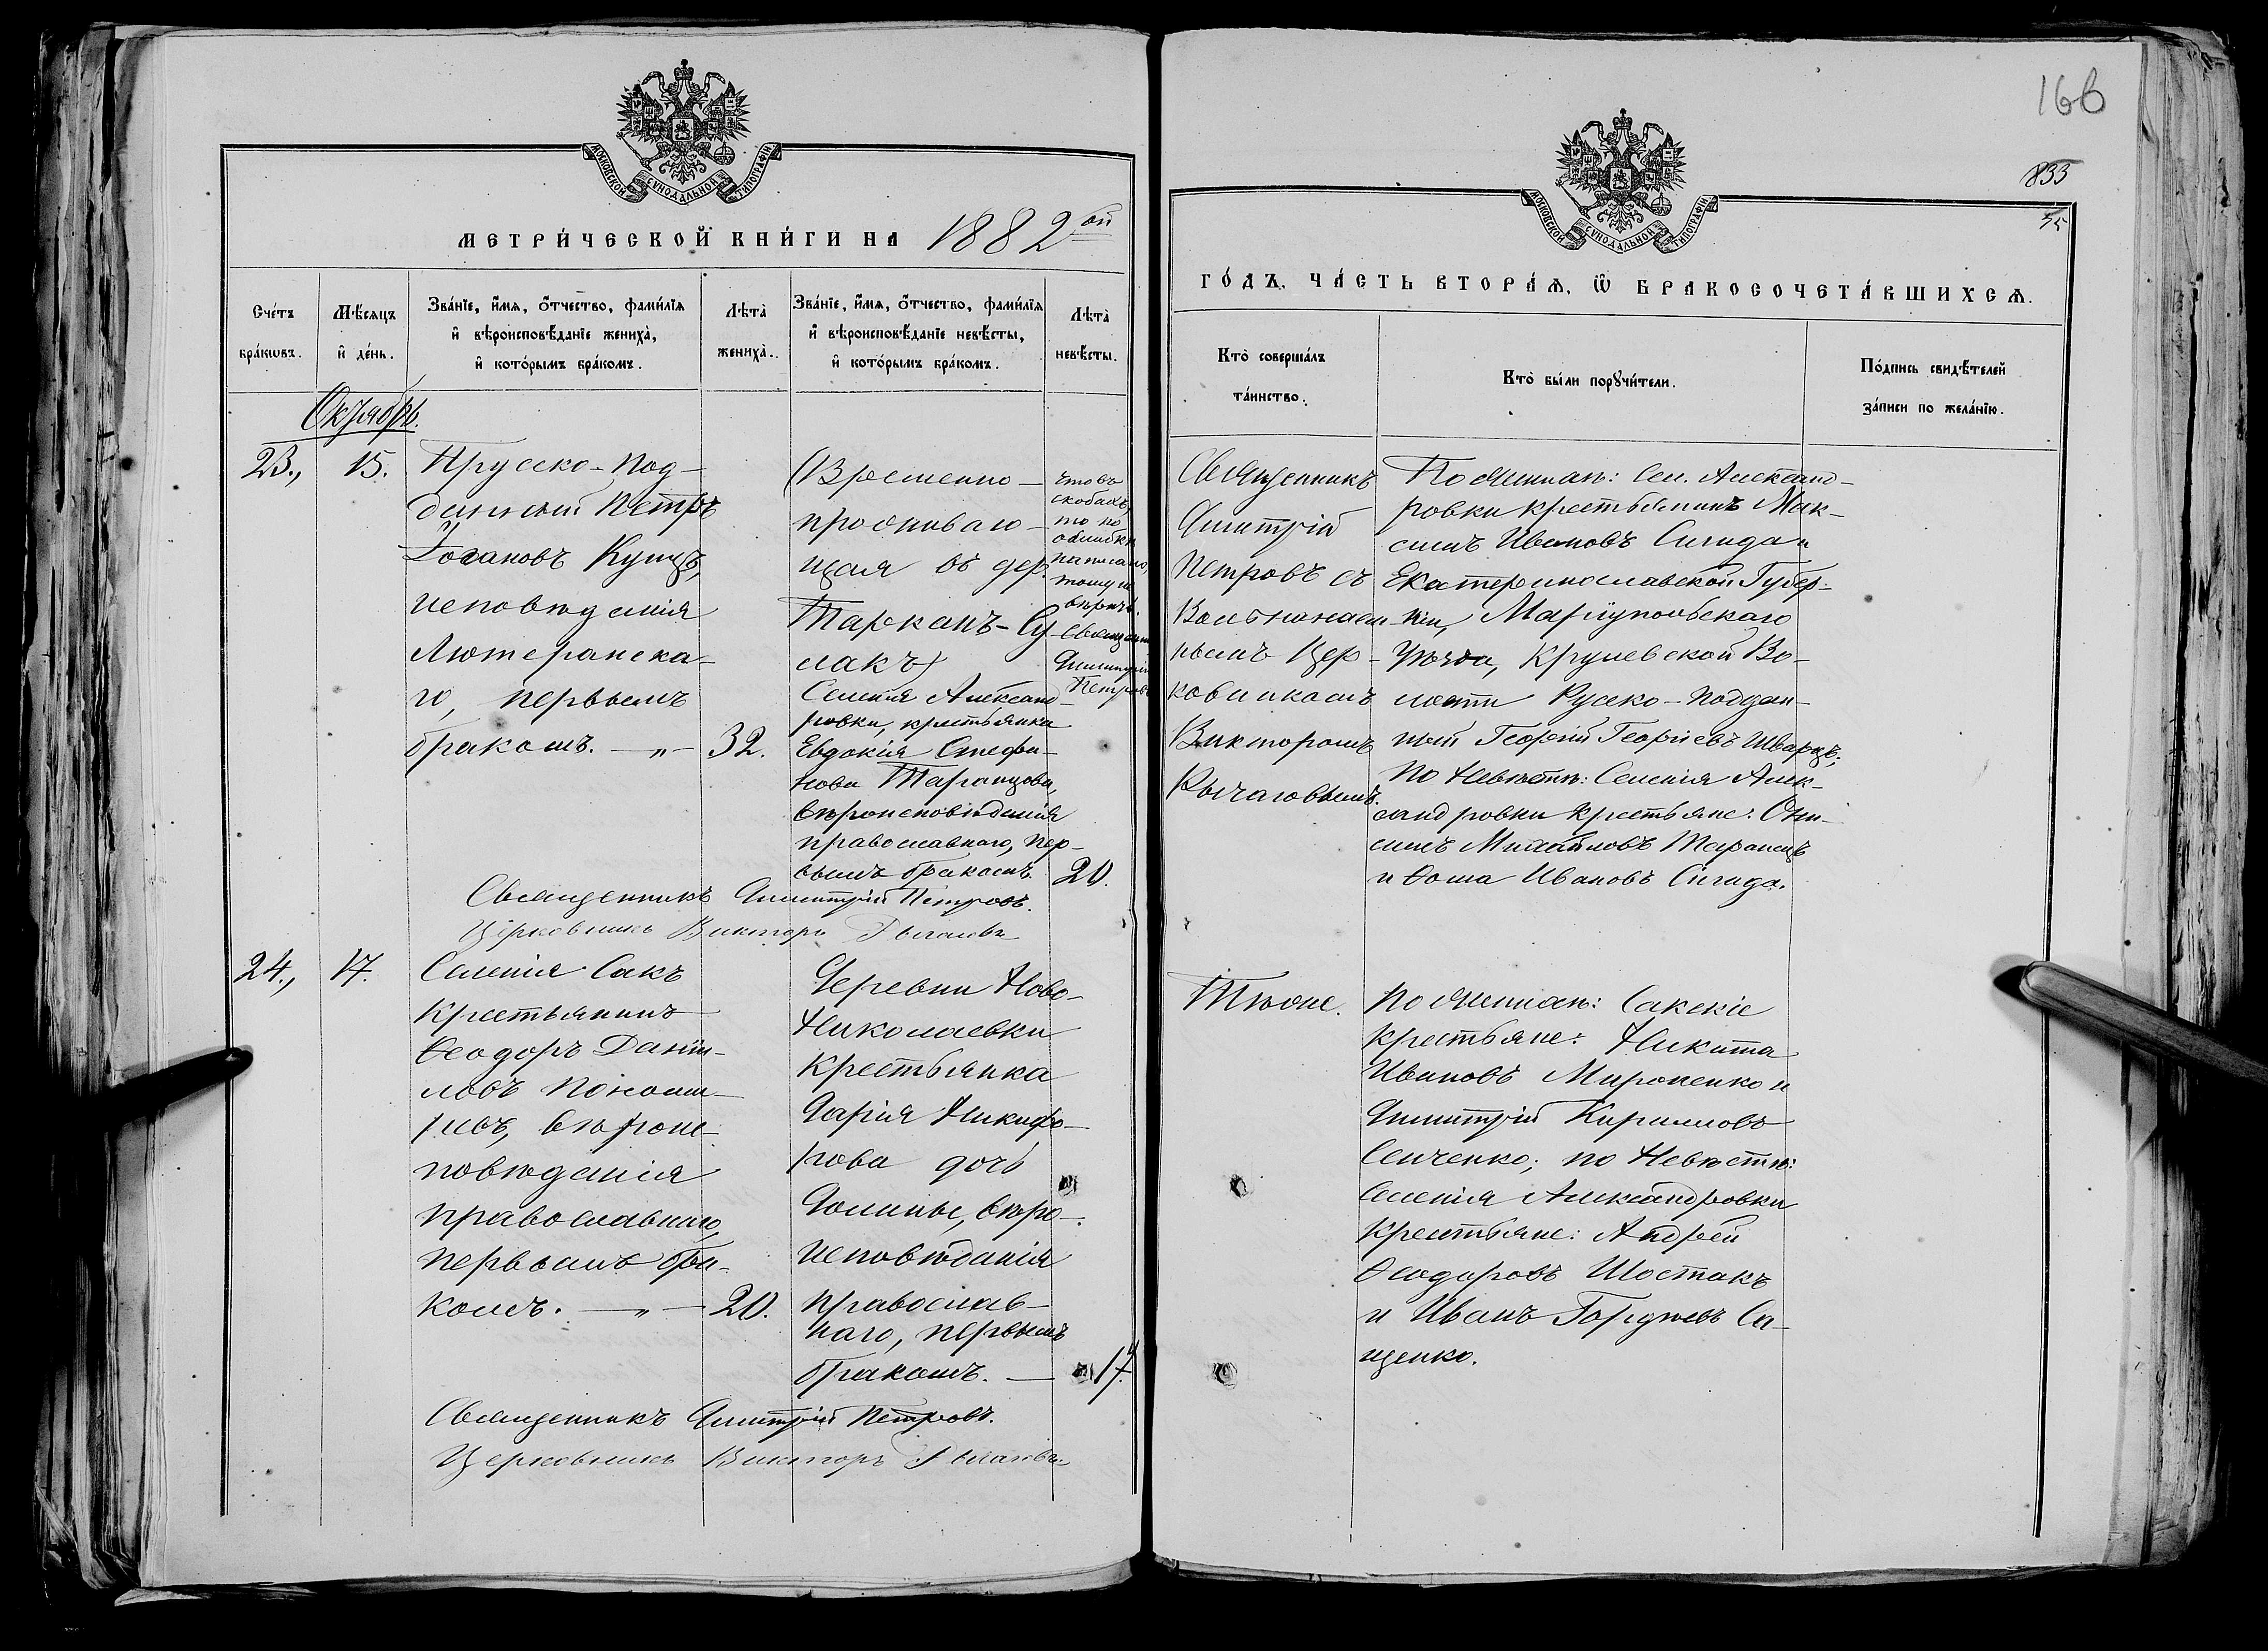 МОСКОВСКОЙ СѴНОДАЛЬНОЙ ТИПОГРАФІИ
МЕТРИ́ЧЕСКОЙ КНИ́ГИ НА 1882ой
Сче́тъ бра́кѡвъ.
Мѣ́сяцъ и҆ де́нь.
Зва́нїе, и҆́мѧ, ѻ҆́тчество, фами́лїѧ
и҆ вѣроисповѣ́данїе жениха̀,
и҆ кото́рымъ бра́комъ.
Лѣта̀ жениха̀.
Зва́нїе, и҆́мѧ, ѻ҆́тчество, фами́лїѧ
и҆ вѣроисповѣ́данїе невѣ́сты,
и҆ кото́рымъ бра́комъ.
Лѣта̀ невѣ́сты.
Октябрь.
23., 15.
Прусско-под-
данный Петръ
Іогановъ Купцъ,
исповѣданія
Лютеранска-
го, первымъ
бракомъ. —„— 32.
(Временно-
проживаю-
щая въ дер.
Тарханъ-Су-
лакъ)
Селенія Александ-
ровки, крестьянка
Евдокія Стефа-
нова Таранцова,
вѣроисповѣданія
православнаго, пер-
вымъ бракомъ. 20.
что въ
скобахъ,
то по
ошибкѣ
написано,
Димитрій
Петровъ
Священникъ Димитрій Петровъ.
Церковникъ Викторъ Рычаговъ
24., 17.
Селенія Сакъ
Крестьянинъ
Ѳеодоръ Даніи-
ловъ
вѣроис-
повѣданія
православнаго,
первымъ бра-
комъ. —„— 20.
Деревни Ново-
Николаевки
Крестьянка
Дарія Никифо-
рова дочь
вѣро-
исповѣданія
православ-
наго, первымъ
бракомъ. — 17.
Священникъ Димитрій Петровъ.
Церковникъ Викторъ Рычаговъ.
166
833
75
МОСКОВСКОЙ СѴНОДАЛЬНОЙ ТИПОГРАФІИ
ГО́ДЪ, ЧА́СТЬ ВТОРА́Ѧ, Ѽ БРАКОСОЧЕТА́ВШИХСѦ.
Кто̀ соверша́лъ
та́инство.
Кто̀ бы́ли порꙋчи́тели.
По́дпись свидѣ́телей
за́писи по жела́нїю.
Священникъ
Димитрій
Петровъ съ
Вольнонаем-
нымъ Цер-
ковникомъ
Викторомъ
Рычаговымъ.
По Женихѣ: Сел. Александ-
ровки крестьянинъ Мак-
симъ Ивановъ Сигида и
Екатеринославской Губер-
ніи, Маріупольскаго
Уѣзда, Во-
лости Русско-поддан-
ный Георгій Георгіевъ Шварцъ;
По Невѣстѣ: Селенія Алек-
сандровки Крестьяне: Они-
симъ Михайловъ Таранецъ
и Ѳома Ивановъ Сигида.
Тѣже.
По Женихѣ: Сакскіе
крестьяне: Никита
Ивановъ Мироненко и
Димитрій Кирилловъ
Сенченко; по Невѣстѣ:
Селенія Александровки
Крестьяне: Андрей
Ѳеодоровъ Шостакъ
и Иванъ Гордѣевъ Са-
щенко.